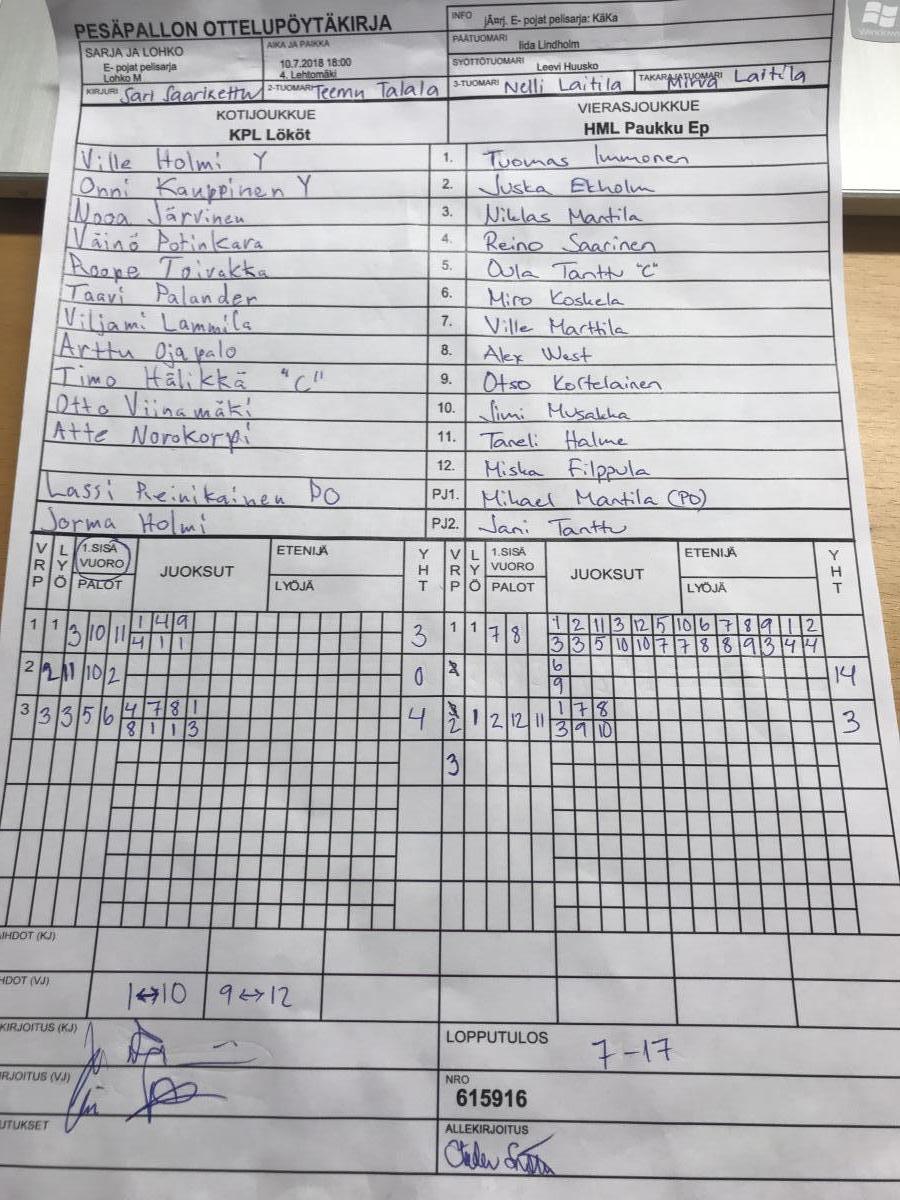 Windows
PESÄPALLON OTTELUPÖYTÄKIRJA
INFO jÃ¤rj. E- pojat pelisarja: KäKa
SARJA JA LOHKO
E- pojat pelisarja
Lohko M
AIKA JA PAIKKA
10.7.2018 18:00
4. Lehtomäki
PÄÄTUOMARI
Iida Lindholm
SYÖTTÖTUOMARI Leevi Huusko
KIRJURI Sari Saarikettu 2-TUOMARI Teemu Talala 3-TUOMARI Nelli Laitila TAKARAJATUOMARI Mirva Laitila
KOTIJOUKKUE VIERASJOUKKUE
KPL Lököt HML Paukku Ep
Ville Holmi Y 1. Tuomas Immonen
Onni Kauppinen Y 2. Juska Ekholm
Nooa Järvinen 3. Niklas Mantila
Väinö Potinkara 4. Reino Saarinen
Roope Toivakka 5. Oula Tanttu "C"
Taavi Palander 6. Miro Koskela
Viljami Lammila 7. Ville Marttila
Arttu Ojapalo 8. Alex West
Timo Hälikkä "C" 9. Otso Kortelainen
Otto Viinamäki 10. Jimi Musakka
Atte Norokorpi 11. Taneli Halme
12. Miska Filppula
Lassi Reinikainen PO PJ1. Mikael Mantila (PO)
Jorma Holmi PJ2. Jani Tanttu
VRP LYÖ 1.SISÄ VUORO PALOT JUOKSUT ETENIJÄ LYÖJÄ YHT VRP LYÖ 1.SISÄ VUORO PALOT JUOKSUT ETENIJÄ LYÖJÄ YHT
1 1 3 10 11 1 4 9 3 1 1 7 8 1 2 11 3 12 5 10 6 7 8 9 1 2
4 1 1 3 3 5 10 10 7 7 8 8 9 3 4 4
2 2 11 10 2 0 2 6 14
9
3 3 3 5 6 4 7 8 1 4 2 1 2 12 11 1 7 8 3
8 1 1 3 3 9 10
3
IHDOT (KJ)
HDOT (VJ) 1↔10 9↔12
KIRJOITUS (KJ)
LOPPUTULOS 7-17
RJOITUS (VJ)
NRO
615916
UTUKSET
ALLEKIRJOITUS